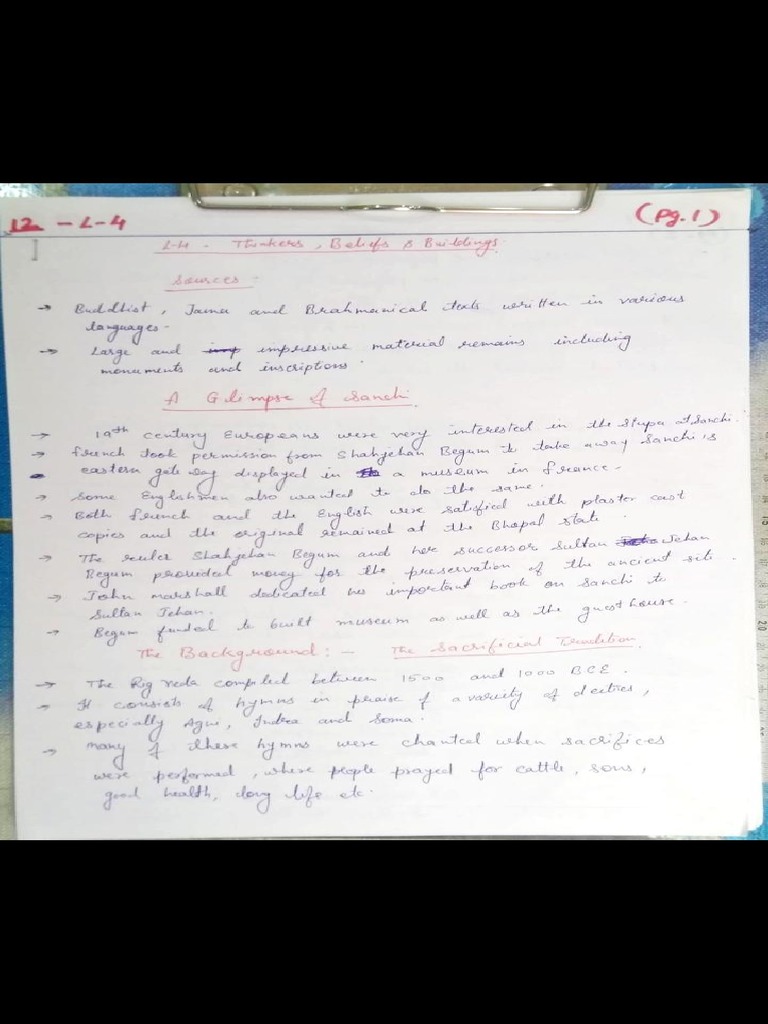 12 - L-4
(Pg.1)
L-4 - Thinkers, Beliefs & Buildings.
Sources -
→ Buddhist, Jaina and Brahmanical texts written in various
languages -
→ Large and impressive material remains including
monuments and inscriptions.
A Glimpse of Sanchi
→ 19th century Europeans were very interested in the stupa at Sanchi.
→ French took permission from Shahjehan Begum to take away Sanchi's
eastern gate way displayed in a museum in France -
→ Some Englishmen also wanted to do the same.
→ Both French and the English were satisfied with plaster cast
copies and the original remained at the Bhopal state.
→ The ruler Shahjehan Begum and her successor Sultan Jehan
Begum provided money for the preservation of the ancient site.
→ John Marshall dedicated his important book on Sanchi to
Sultan Jehan.
→ Begum funded to built museum as well as the guest house.
The Background : - The Sacrificial Tradition
→ The Rig veda compiled between 1500 and 1000 BCE.
→ It consists of hymns in praise of a variety of deities,
especially Agni, Indra and Soma.
→ Many of these hymns were chanted when sacrifices
were performed, where people prayed for cattle, sons,
good health, long life etc.